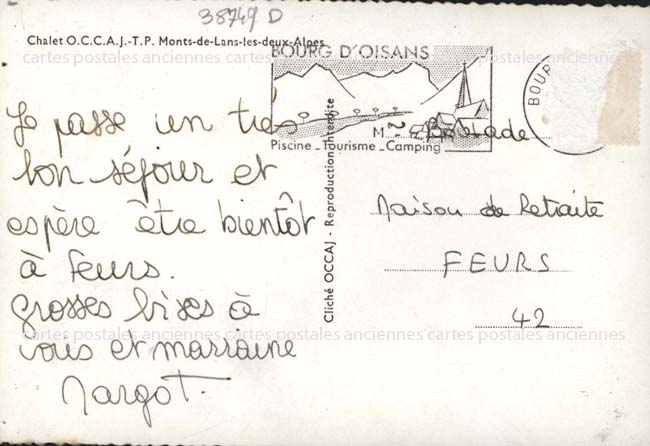 38749 D
Chalet O.C.C.A.J.-T.P. Monts-de-Lans-les-deux-Alpes
cartes postales anciennes cartes postales anciennes cartes postales anciennes
BOURG D'OISANS
Piscine - Tourisme - Camping
BOUR
Je passe un très
bon séjour et
espère être bientôt
à Feurs.
grosses bises à
vous et marraine
Margot.
Cliché OCCAJ - Reproduction interdite
M
Maison de Retraite
FEURS
42
cartes postales anciennes cartes postales anciennes cartes postales anciennes